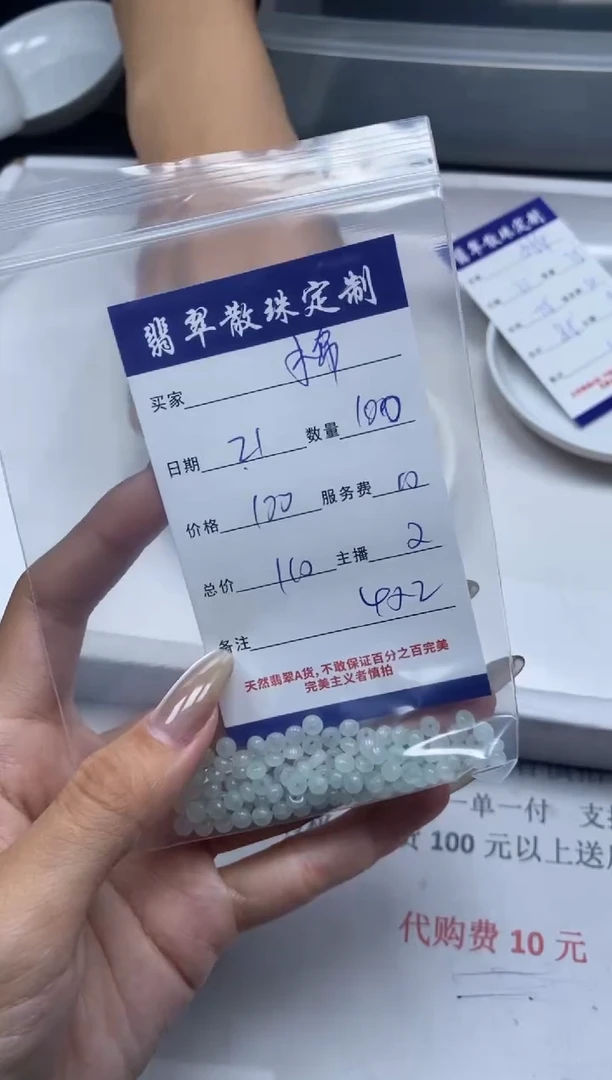 翡翠散珠定制
买家 木棉
日期 21 数量 100
价格 100 服务费 10
总价 110 主播 2
备注 422
天然翡翠A货,不敢保证百分之百完美
完美主义者慎拍
翡翠散珠定制
一单一付 支
100 元以上送
代购费 10 元